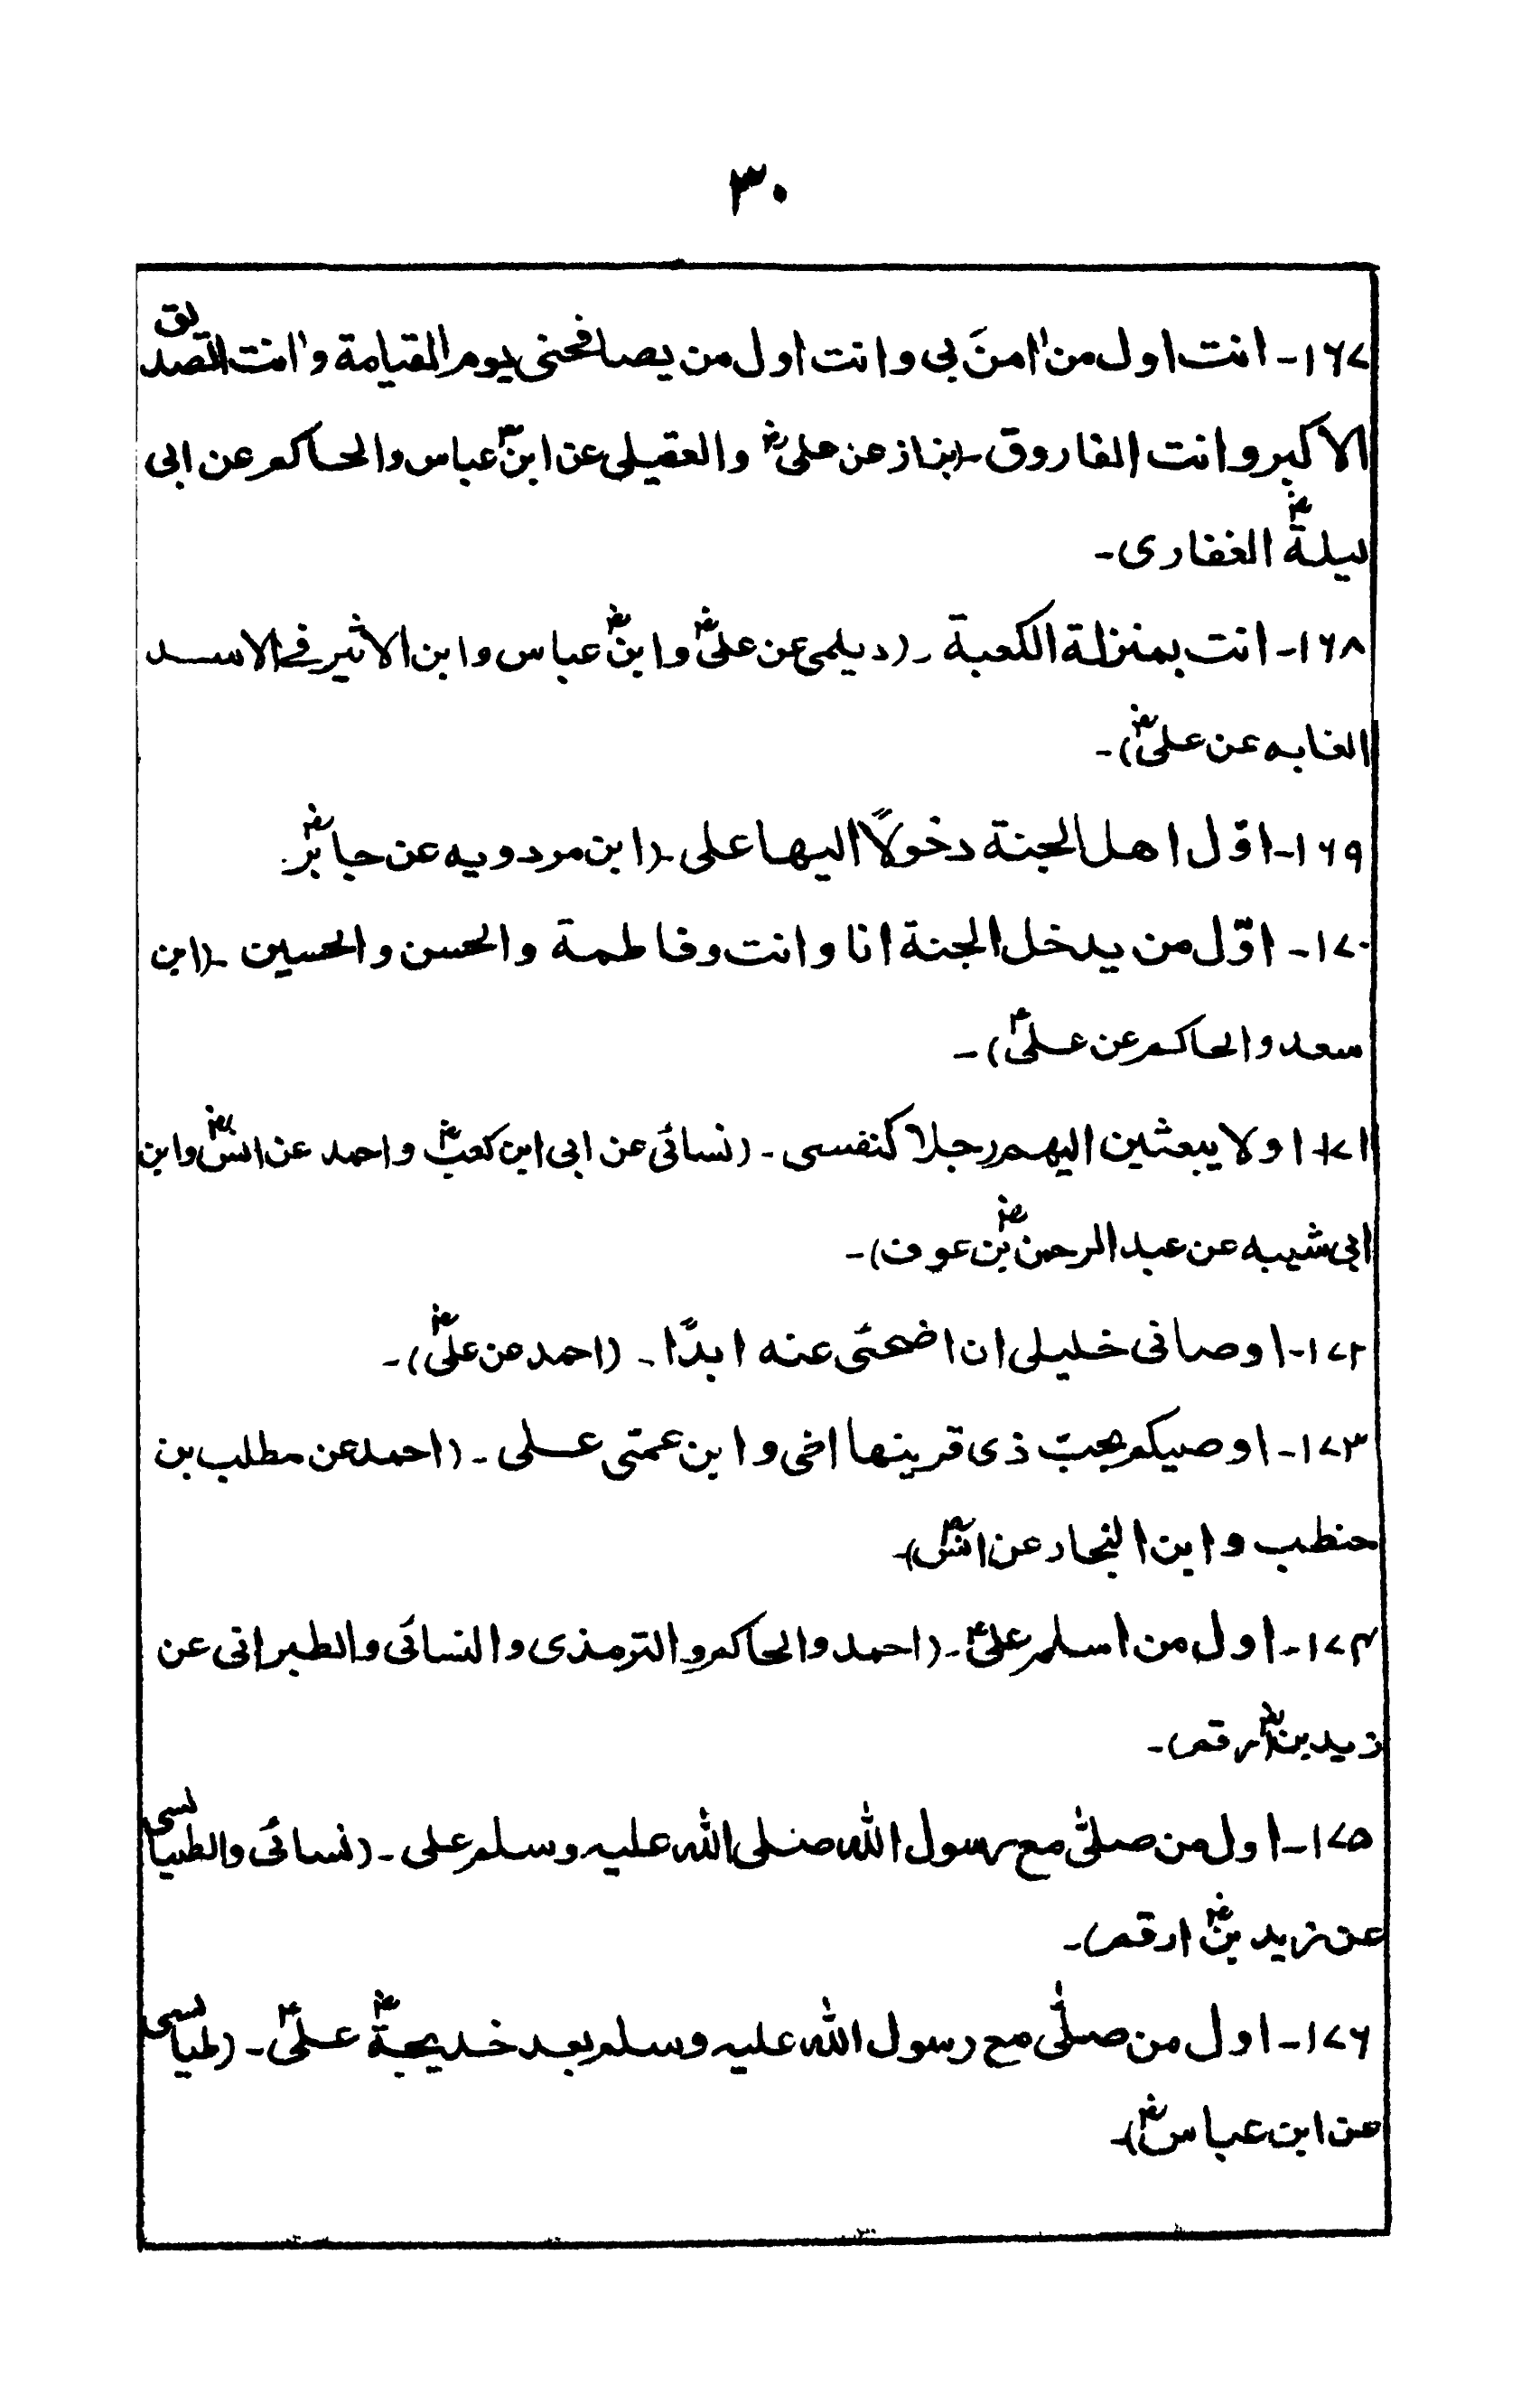 ۳۰
۱۶۷۔ انت اول من اٰمنَ بی وانت اول من یصافحنی یوم القیامة وانت الصدیق
الاکبر وانت الفاروق۔ (بزاز عن علیؓ والعقیلی عن ابنؓ عباس والحاکم عن ابی
لیلةؓ الغفاری۔
۱۶۸۔ انت بمنزلة الکعبة۔ (دیلمی عن علیؓ وابنؓ عباس وابن الاثیر فے الاسد
الغابه عن علیؓ)۔
۱۶۹۔ اوّل اهل الجنة دخولًا الیها علی۔ (ابن مردویه عن جابرؓ
۱۷۰۔ اوّل من یدخل الجنة انا وانت وفاطمة والحسن والحسین۔ (ابن
سعد والحاکم عن علیؓ)۔
۱۷۱۔ اولا یبعثین الیهم رجلا کنفسی۔ (نسائی عن ابی ابن کعبؓ واحمد عن انسؓ وابن
ابی شیبه عن عبد الرحمنؓ بن عوف)۔
۱۷۲۔ اوصانی خلیلی ان اضحیٰ عنه ابدًا۔ (احمد عن علیؓ)۔
۱۷۳۔ اوصیکم بحبّ ذی قرینها اخی وابن عمتی علی۔ (احمد عن مطلب بن
حنطب وابن النجار عن انسؓ)۔
۱۷۴۔ اول من اسلم علیؓ۔ (احمد والحاکم والترمذی والنسائی والطبرانی عن
زید بنؓ ارقم)۔
۱۷۵۔ اول من صلّٰی مع رسول اللہ صلی اللہ علیہ وسلم علی۔ (نسائی والطیالسی
عن زید بنؓ ارقم)۔
۱۷۶۔ اول من صلّٰی مع رسول اللہ علیہ وسلم بعد خدیجةؓ علیؓ۔ (طیالسی
عن ابن عباسؓ)۔